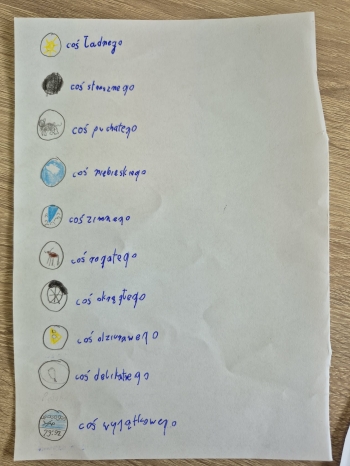 coś ładnego
coś strasznego
coś puchatego
coś niebieskiego
coś zimnego
coś rogatego
coś okrągłego
coś dziurawego
coś delikatnego
coś wyjątkowego